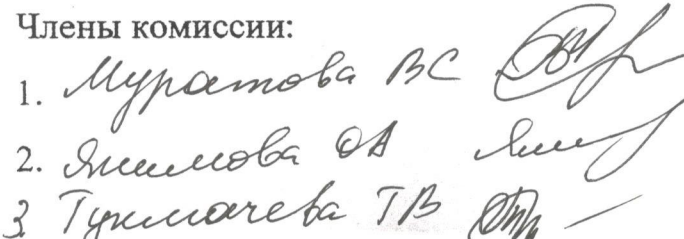 Члены комиссии:
1. Муратова ВС
2. Якимова ОА
3. Тукмачева ТВ